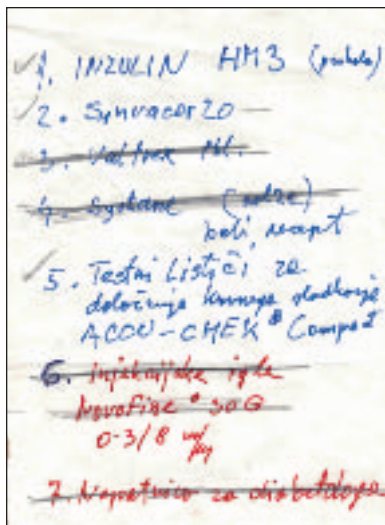 1. INZULIN HM3
2. Synvacor 20
3. Valtrex
4. Systane (solze)
beli recept
5. Testni Lističi za
določanje krvnega sladkorja
ACCU-CHEK® Compact
6. Injekcijske igle
NovoFine® 30G
0.3/8
7. Napotnica za diabetologa